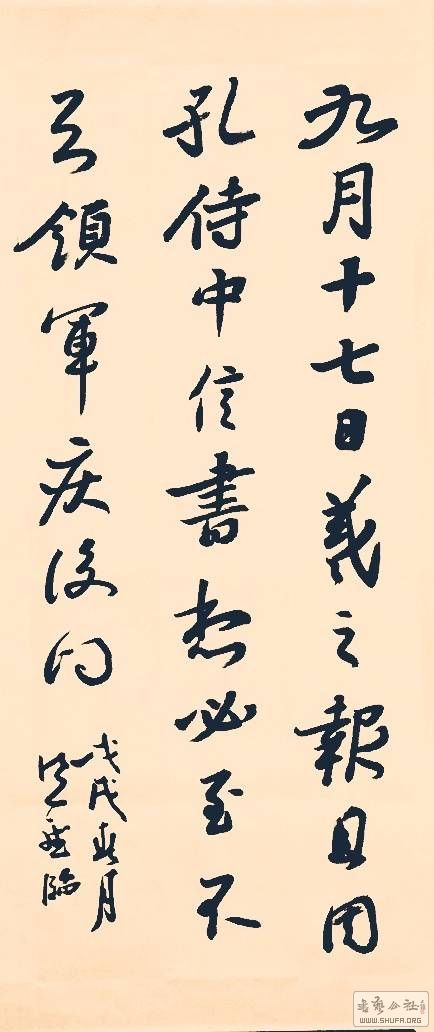 九月十七日羲之報且因
孔侍中信書想必至不
知領軍疾後問
戊戌春月
臨
書藝公社
WWW.SHUFA.ORG